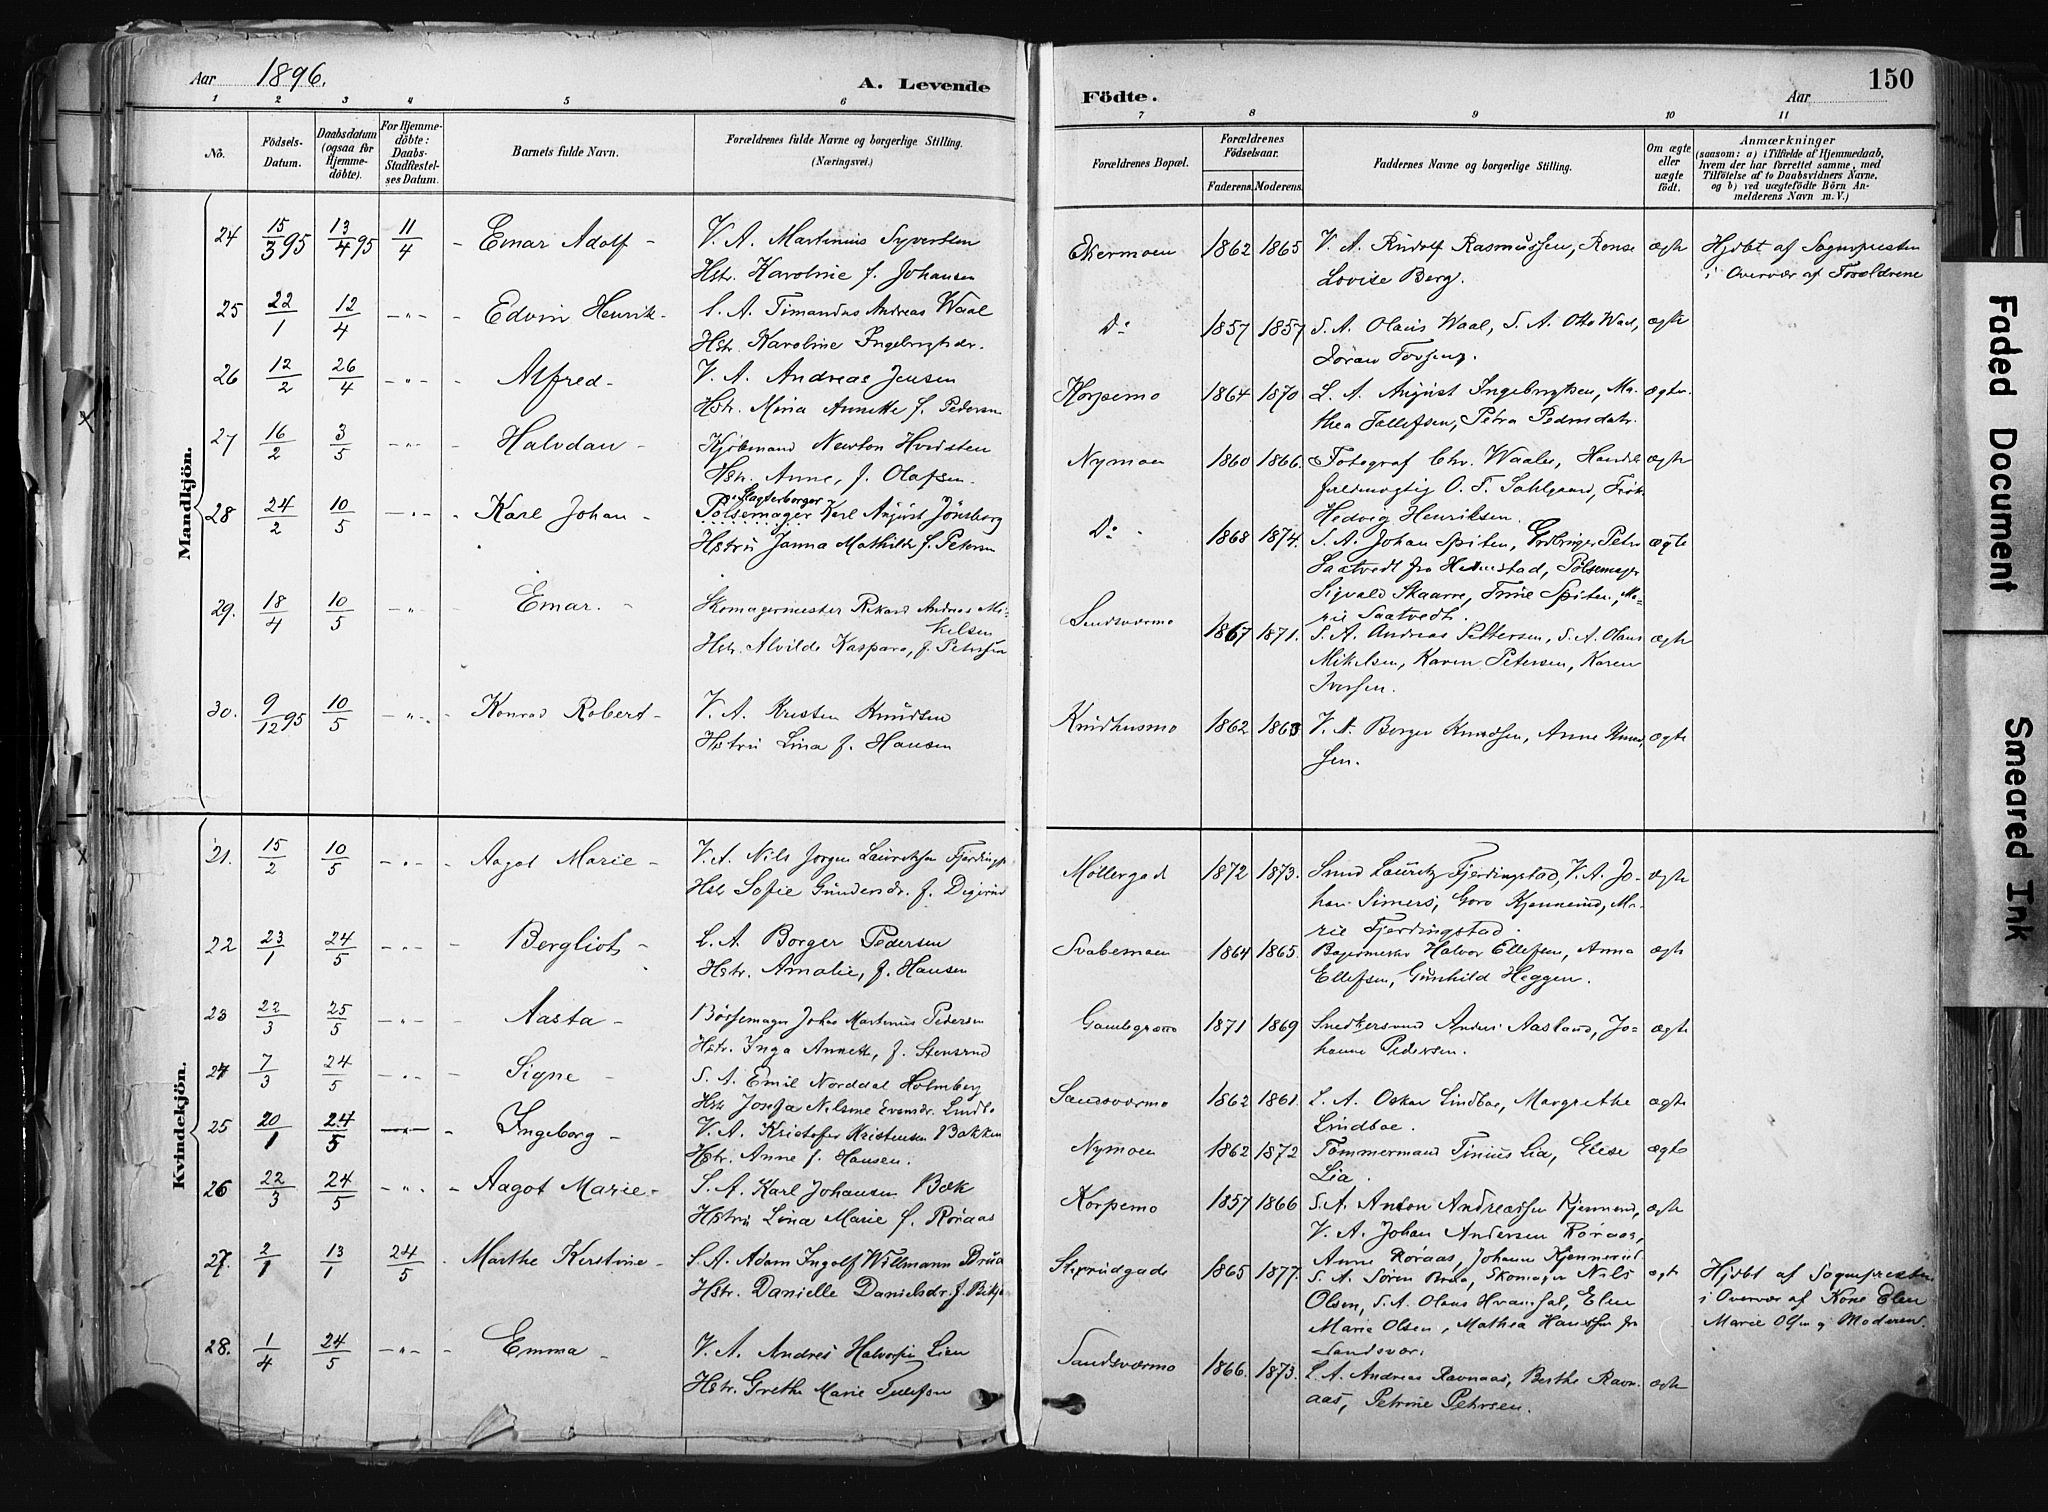 Aar 1896. A. Levende
Födte. Aar 150
1 2 3 4 5 6 7 8 9 10 11
No.
Födsels-
Datum.
Daabsdatum
(ogsaa for
Hjemme-
döbte).
For Hjemme-
döbte:
Daabs-
Stadfæstel-
ses Datum.
Barnets fulde Navn.
Forældrenes fulde Navne og borgerlige Stilling.
(Næringsvei.)
Forældrenes Bopæl.
Forældrenes
Födselsaar.
Faderens. Moderens.
Faddernes Navne og borgerlige Stilling.
Om ægte
eller
uægte
födt.
Anmærkninger
(saasom: a) i Tilfælde af Hjemmedaab,
hvem der har forrettet samme, med
Tilföielse af to Daabsvidners Navne,
og b) ved uægtefödte Börn An-
melderens Navn m. V.)
Mandkjön.
24 15/3 95 13/4 95 11/4 - Einar Adolf - V. A. Martinius Syvertsen
Hstr. Karoline f. Johansen
Ekermoen 1862 1865 V. A. Rudolf Rasmussen,
Lovise Berg.
ægte Hjdbt af Sognepresten
i Overvær af Forældrene
25 22/1 12/4 -"- - Edvin Henrik - S. A. Timandus Andreas Waal
Hstr. Karoline Ingebrigtsdr.
Do 1857 1857 S. A. Olaus Waal, S. A. Otto Waal,
ægte
26 12/2 26/4 -"- - Alfred - V. A. Andreas Jensen
Hstr. Mina Annette f. Pedersen
Korpemo 1864 1870 L. A. August Ingebrigtsen, Ma-
thea Tollefsen, Petra Pedersdatr.
ægte.
27 16/2 3/5 -"- - Halvdan - Kjöbmand Newton Hvidsten
Hstr. Anne, f. Olafsen.
Nymoen 1860 1866. Fotograf Chr. Waaler, Handels
fuldmægtig O. T. Sahlgaard, Frök.
Hedvig Henriksen.
ægte
28 24/2 10/5 -"- - Karl Johan - Slagterborger
Pölsemager Karl August Jönsberg
Hstru Janna Mathilde f. Petersen
Do - 1868 1874. S. A. Johan Spiten, Petr
Saatvedt fra Holmestad, Pölsemager
Sigvald Skaarre, Trine Spiten, Ma-
rie Saatvedt.
ægte
29. 18/4 10/5 -"- - Einar. - Skomagermester Rikard Andreas Mi-
kelsen
Hstr. Alvilde Kaspara, f. Petersen
Sandsværmo 1867 1871. S. A. Andreas Pettersen, S. A. Olaus
Mikelsen, Karen Petersen, Karen
Iversen.
ægte
30. 9/12 95 10/5 -"- - Konrad Robert - V. A. Kristen Knudsen
Hstru Lina f. Hansen
Knudhusmo 1862 1863 V. A. Borger Knudsen, Anne Knud-
sen.
ægte
Kvindekjön.
21. 15/2 10/5 -"- - Aagot Marie - V. A. Nils Jorgen Lauritzsen Fjerdingst
Hstr Sofie Gundersdr. f. Digerud
Möllergad 1872 1873. Smed Lauritz Fjerdingstad, V. A. Jo-
han Simers, Goro Kjennerud, Ma-
rie Fjerdingstad.
ægte
22 23/1 24/5 -"- - Bergliot - L. A. Borger Pedersen
Hstr. Amalie, f. Hansen
Svabemoen 1864 1865. Bagermester Halvor Ellefsen, Anna
Ellefsen, Gunhild Heggen.
ægte
23 22/3 25/5 -"- - Aasta - Börsemager Johan Martinius Pedersen
Hstr. Inga Annette, f. Stensrud
Gamlegrænd 1871 1869 Snedkersvend Anders Aasland, Jo-
hanne Pedersen.
ægte
24 7/3 24/5 -"- - Signe - S. A. Emil Norddal Holmberg
Hstr Josefa Nilsine Evensdr. Lindbo
Sandsværmo 1862 1861. L. A. Oskar Lindboe, Margrethe
Lindboe.
ægte
25 20/1 24/5 -"- - Ingeborg - V. A. Kristofer Kristensen Bakken
Hstr. Anne f. Hansen.
Nymoen 1862 1872 Tömmermand Tinius Lia, Elise
Lia.
ægte
26 22/3 24/5 -"- - Aagot Marie - S. A. Karl Johansen Bæk
Hstru Lina Marie f. Röraas
Korpemo 1857 1866 S. A. Anton Andreassen Kjennerud,
V. A. Johan Andersen Röraas,
Anne Röraas, Johanne Kjennerud
ægte
27. 2/1 13/1 24/5 - Marthe Kirstine - S. A. Adam Ingolf Willmann Brua
Hstr. Danielle Danielsdr. f.
Stiprudgade 1865 1877. S. A. Sören Brua, Skomager Nils
Olsen, S. A. Olaus Hvamsal, Elen
Marie Olsen, Mathea Hanssen fra
Sandsvær.
ægte Hjdbt af Sognepresten
i Overvær af Kone Elen
Marie Olsen og Moderen
28. 1/4 24/5 -"- - Emma - V. A. Andres Halvorsen Lien
Hstr. Grethe Marie Tollefsen
Sandsværmo 1866. 1873. L. A. Andreas Ravnaas, Berthe Ravn-
aas, Petrine Petersen.
ægte
Faded Document
Smeared Ink